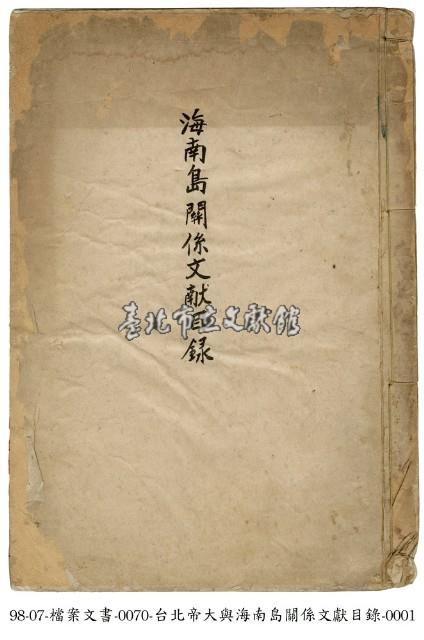 海南島關係文献目録
臺北市立文獻館
98-07-檔案文書-0070-台北帝大與海南島關係文獻目錄-0001